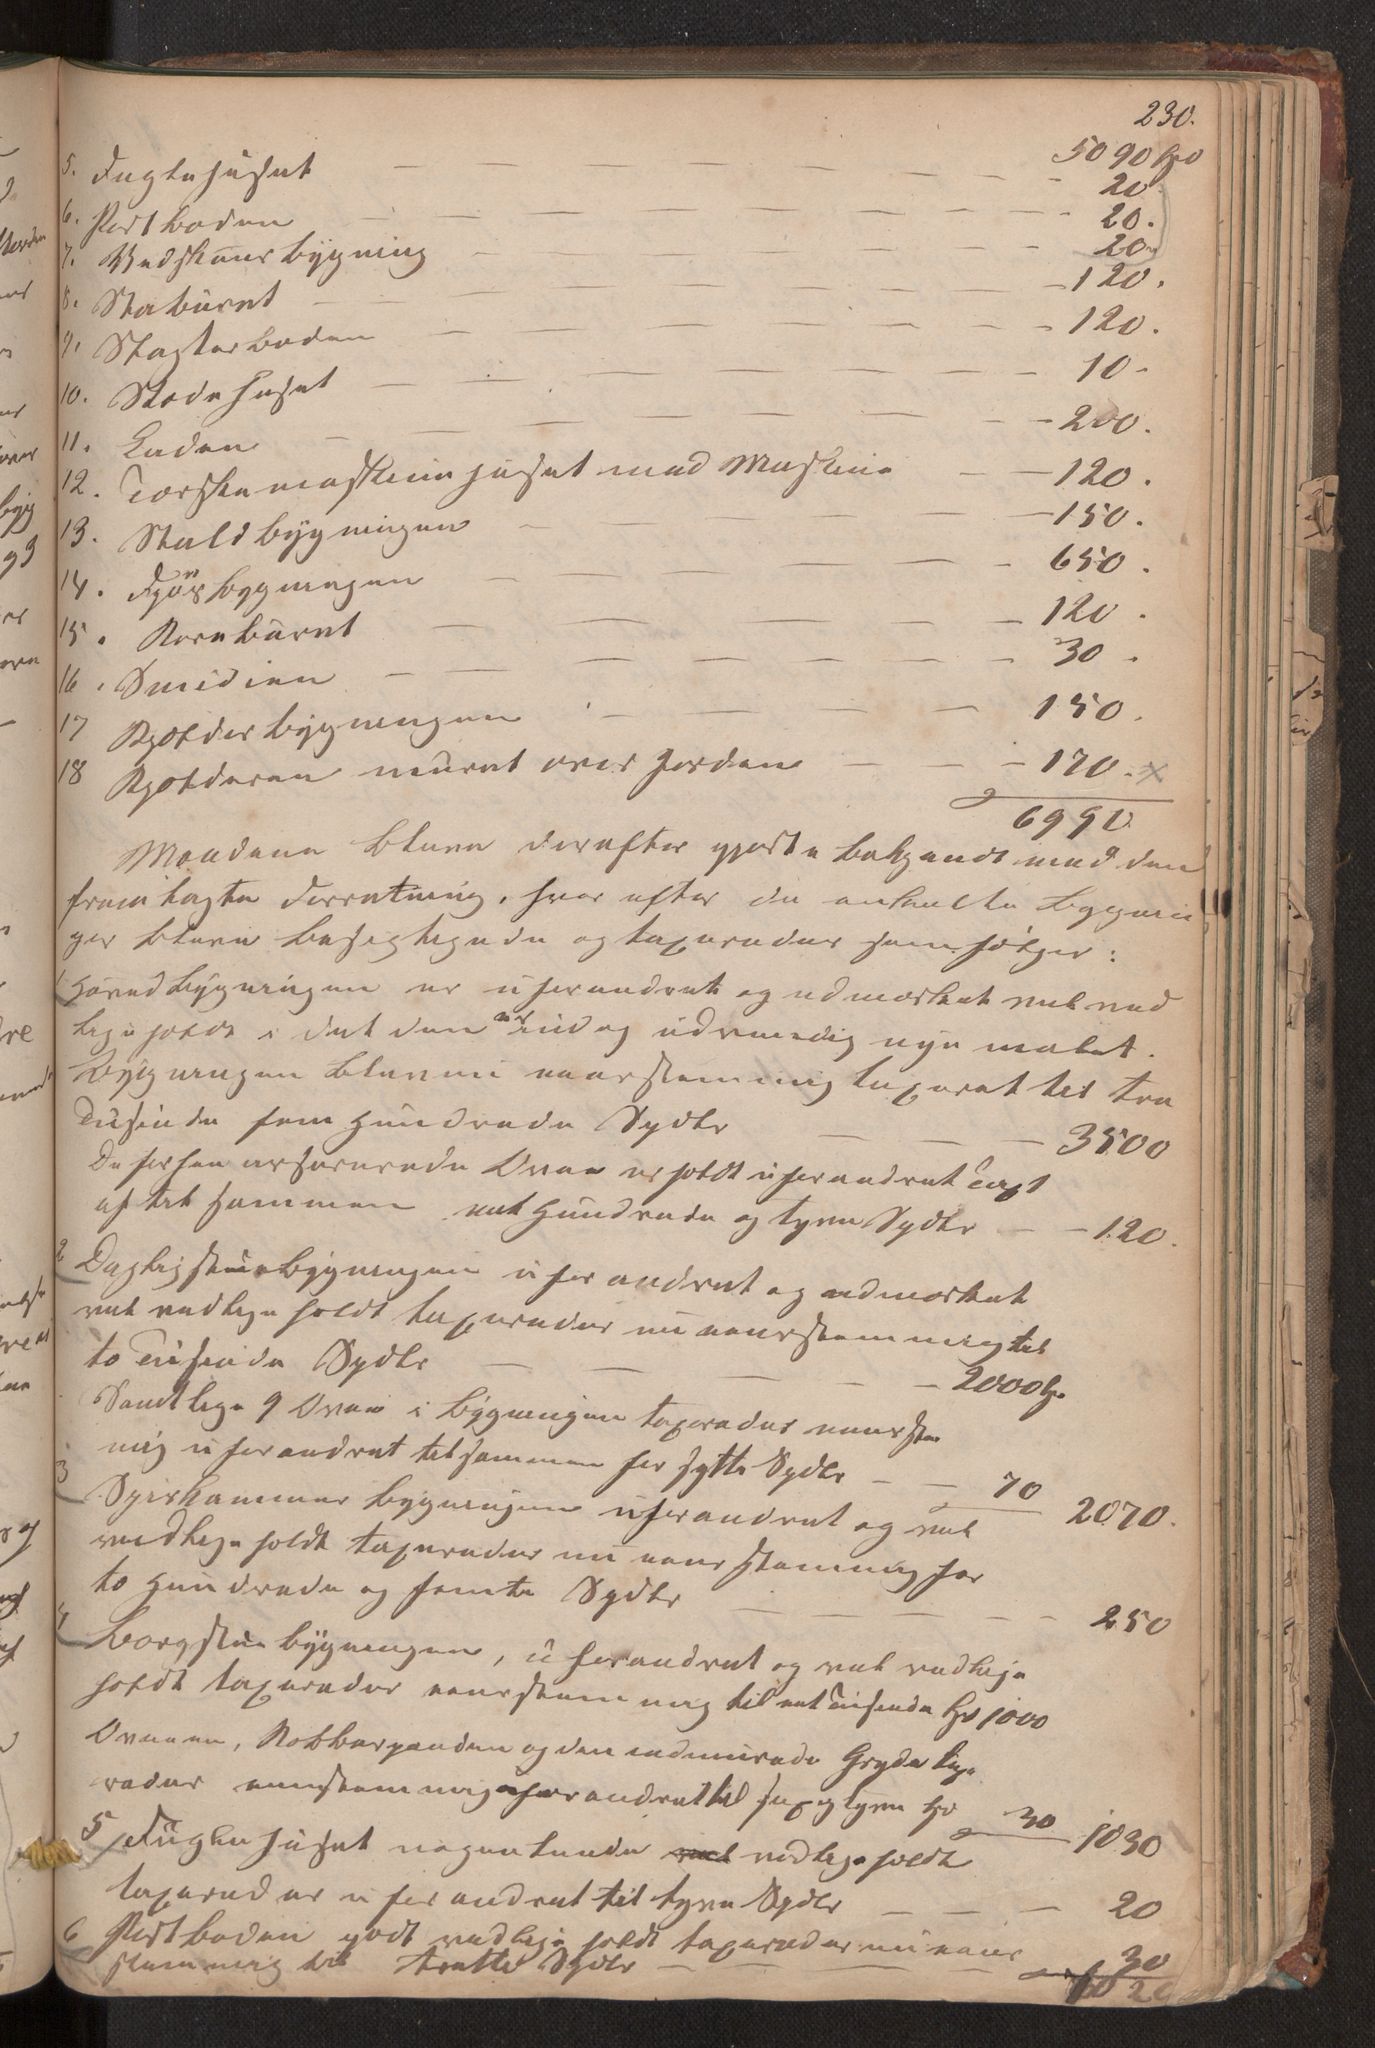 230.
5090 Spd
5. Fuglehuset — — — — 20.
6. Postboden — — — — 20.
7. Vedskuurbygning — — — — 20.
8. Staburet — — — — 120.
9. Slagterboden — — — — 120.
10. Slodehuset — — — — 10.
11. Laden — — — — 200.
12. Tærskemaskinehuset med Maskine — — 120.
13. Staldbygningen — — — — 150.
14. Fjøsbygningen — — — — 650.
15. Kornburet — — — — 120.
16. Smidien — — — — 30.
17 Kjelderbygningen — — — — 150.
18 Kjelderen muret over Jorden — — — 170. x
6990
Mændene bleve derefter gjorte bekjendt med den
fremlagte Forretning, hvorefter de enkelte Bygnin
ger bleve besigtigede og taxerades som følger:
1 Hovedbygningen er uforandret og udmærket vel ved
ligeholdt i det den er ind og udvendig nye malet.
Bygningen blev nu eenstemmig taxeret til tre
Tusinde fem Hundrede Spdlr — — — 3500
De forhen anførede Ovne er holdt uforandret Taxt
af til sammen et Hundrede og tyve Spdlr — — 120.
2 Dagligstuebygningen uforandret og udmærket
vel vedligeholdt taxerades nu eenstemmig til
to Tusinde Spdlr — — — — — 2000 Sp
Samtlige 9 Ovne i Bygningen taxerades eenstem
mig uforandret tilsammen for sytti Spdlr — — 70 2070.
3 Spiskammerbygningen uforandret og vel
vedligeholdt taxerades nu eenstemmig for
to Hundrede og femti Spdlr — — — — — 250
4 Borgstuebygningen, uforandret og vel vedlige
holdt taxerades eenstemmig til et Tusinde Spd 1000
Ovnen, Kobberpanden og den indmurede Gryde taxe
rades eenstemmig uforandret til Spd 30 1030
5 Fuglehuset nogenlunde vel vedligeholdt
taxerades uforandret til tyve Spdlr — — — 20
6 Postboden godt vedligeholdt taxerades nu een
stemmig til tretti Spdlr — — — — 30